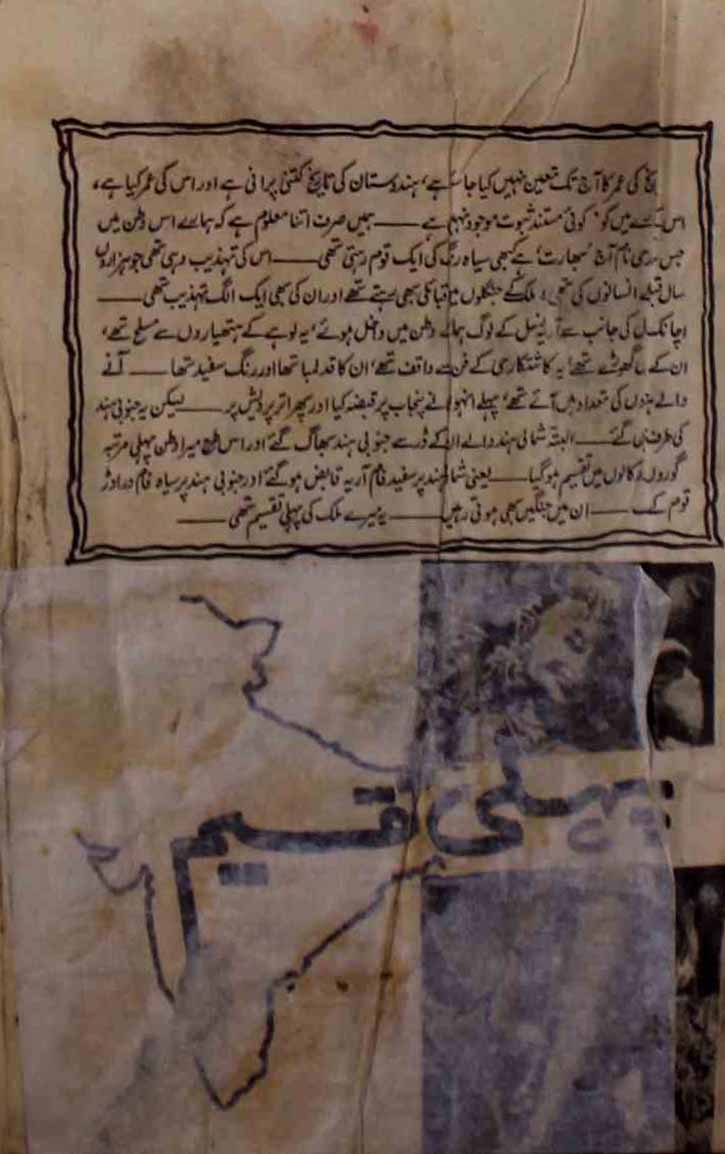 یخ کی عمر کا آج تک تعین نہیں کیا جا سکا ہے، ہندوستان کی تاریخ کتنی پرانی ہے اور اس کی عمر کیا ہے،
اس میں کوئی مستند ثبوت موجود نہیں ہے —— ہمیں صرف اتنا معلوم ہے کہ ہمارے اس وطن میں
جس نام آج 'بھارت' ہے کبھی سیاہ رنگ کی ایک قوم رہتی تھی —— اس کی تہذیب وہی تھی جو ہزاروں
سال قبل انسانوں کی تھی، ملک کے جنگلوں میں قبائلی بھی رہتے تھے اور ان کی بھی ایک الگ تہذیب تھی ——
اچانک کی جانب سے آریہ نسل کے لوگ ہمارے وطن میں داخل ہوئے، یہ لوہے کے ہتھیاروں سے مسلح تھے،
ان کے گھوڑے تھے، یہ کاشتکاری کے فن سے واقف تھے، ان کا قد لمبا تھا اور رنگ سفید تھا —— آنے
والے ہزاروں کی تعداد میں آئے تھے، پہلے انہوں نے پنجاب پر قبضہ کیا اور پھر اتر پردیش پر —— لیکن یہ جنوبی ہند
کی طرف نہیں گئے —— البتہ شمالی ہند والے ان کے ڈر سے جنوبی ہند بھاگ گئے اور اس طرح میرا وطن پہلی مرتبہ
گوروں اور کالوں میں تقسیم ہو گیا —— یعنی شمالی ہند پر سفید فام آریہ قابض ہو گئے اور جنوبی ہند پر سیاہ فام دراوڑ
قوم کے —— ان میں جنگیں بھی ہوتی رہیں —— یہ میرے ملک کی پہلی تقسیم تھی ——
پہلی تقسیم